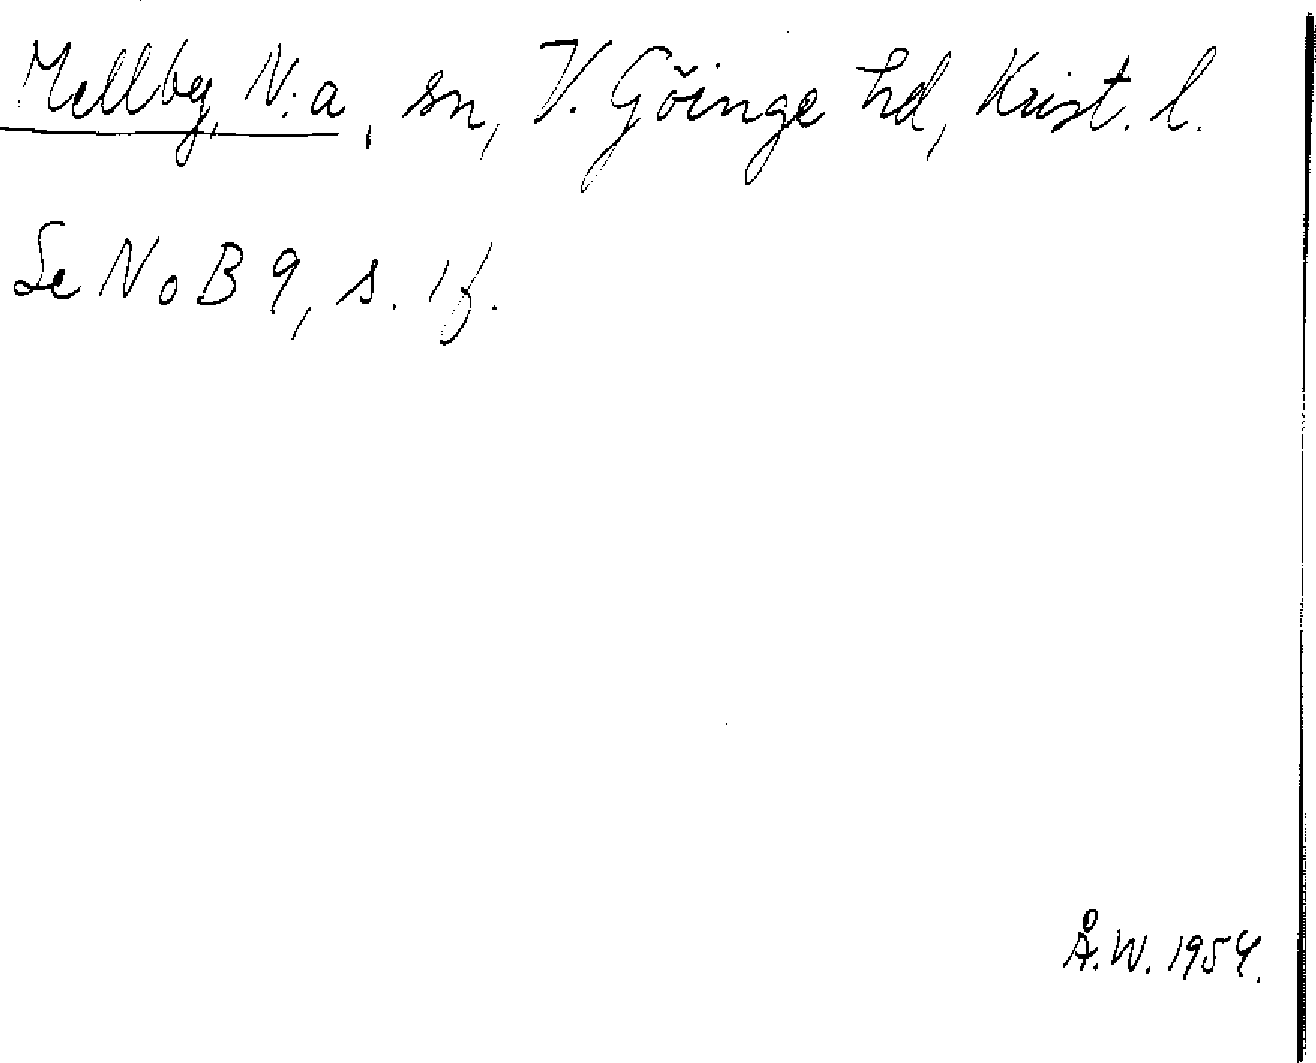 Mellby, N:a, sn, V. Göinge hd, Krist. l.
Se NoB 9, s. 1 f.
Å.W. 1954.